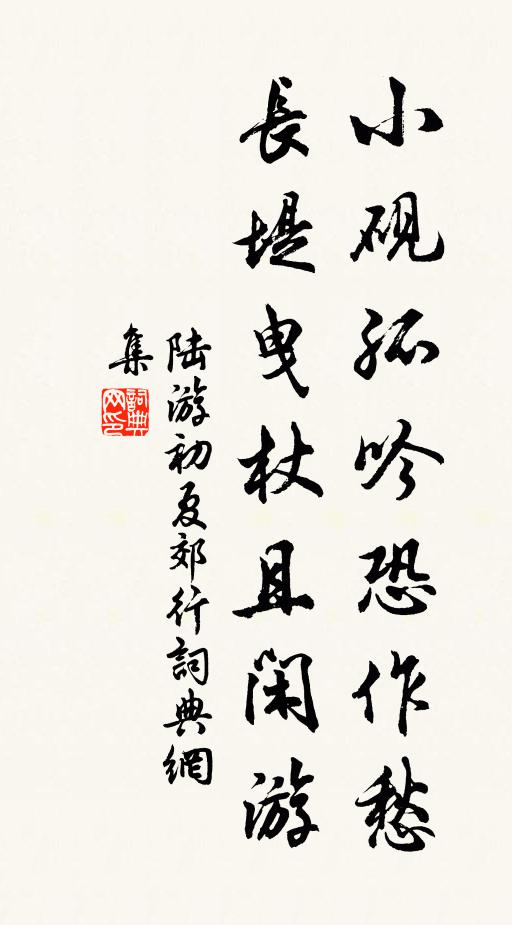 小硯孤吟恐作愁
長堤曳杖且閑游
陸游初夏郊行詞典網
集
詞典網印